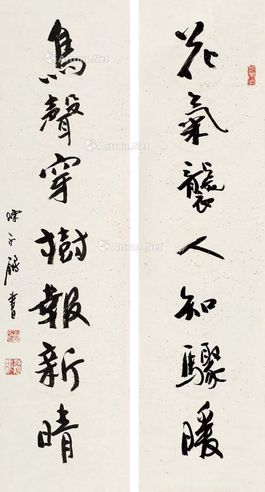 花氣襲人知驟暖
鳥聲穿樹報新晴
書
Artron.Net
Artron.Net